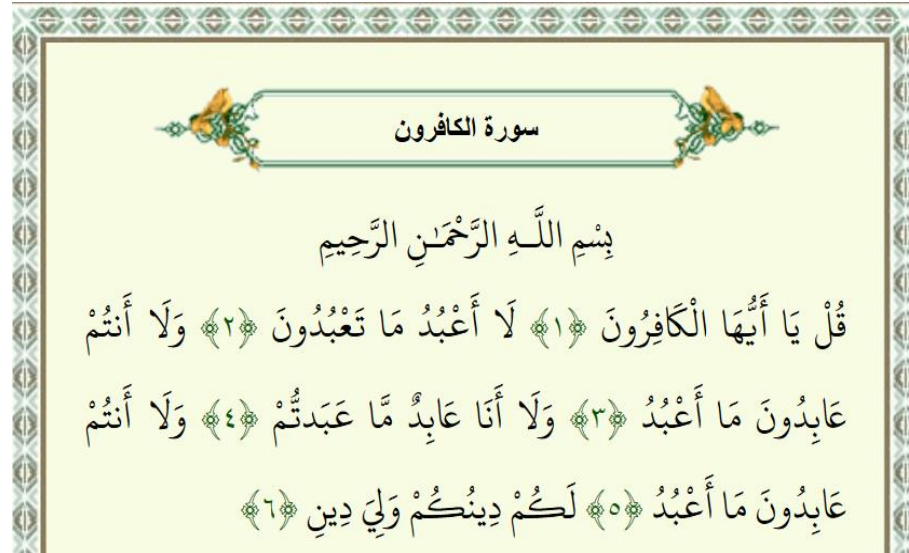 سورة الكافرون
بِسْمِ اللَّـهِ الرَّحْمَـٰنِ الرَّحِيمِ
قُلْ يَا أَيُّهَا الْكَافِرُونَ ﴿١﴾ لَا أَعْبُدُ مَا تَعْبُدُونَ ﴿٢﴾ وَلَا أَنتُمْ
عَابِدُونَ مَا أَعْبُدُ ﴿٣﴾ وَلَا أَنَا عَابِدٌ مَّا عَبَدتُّمْ ﴿٤﴾ وَلَا أَنتُمْ
عَابِدُونَ مَا أَعْبُدُ ﴿٥﴾ لَكُمْ دِينُكُمْ وَلِيَ دِينِ ﴿٦﴾